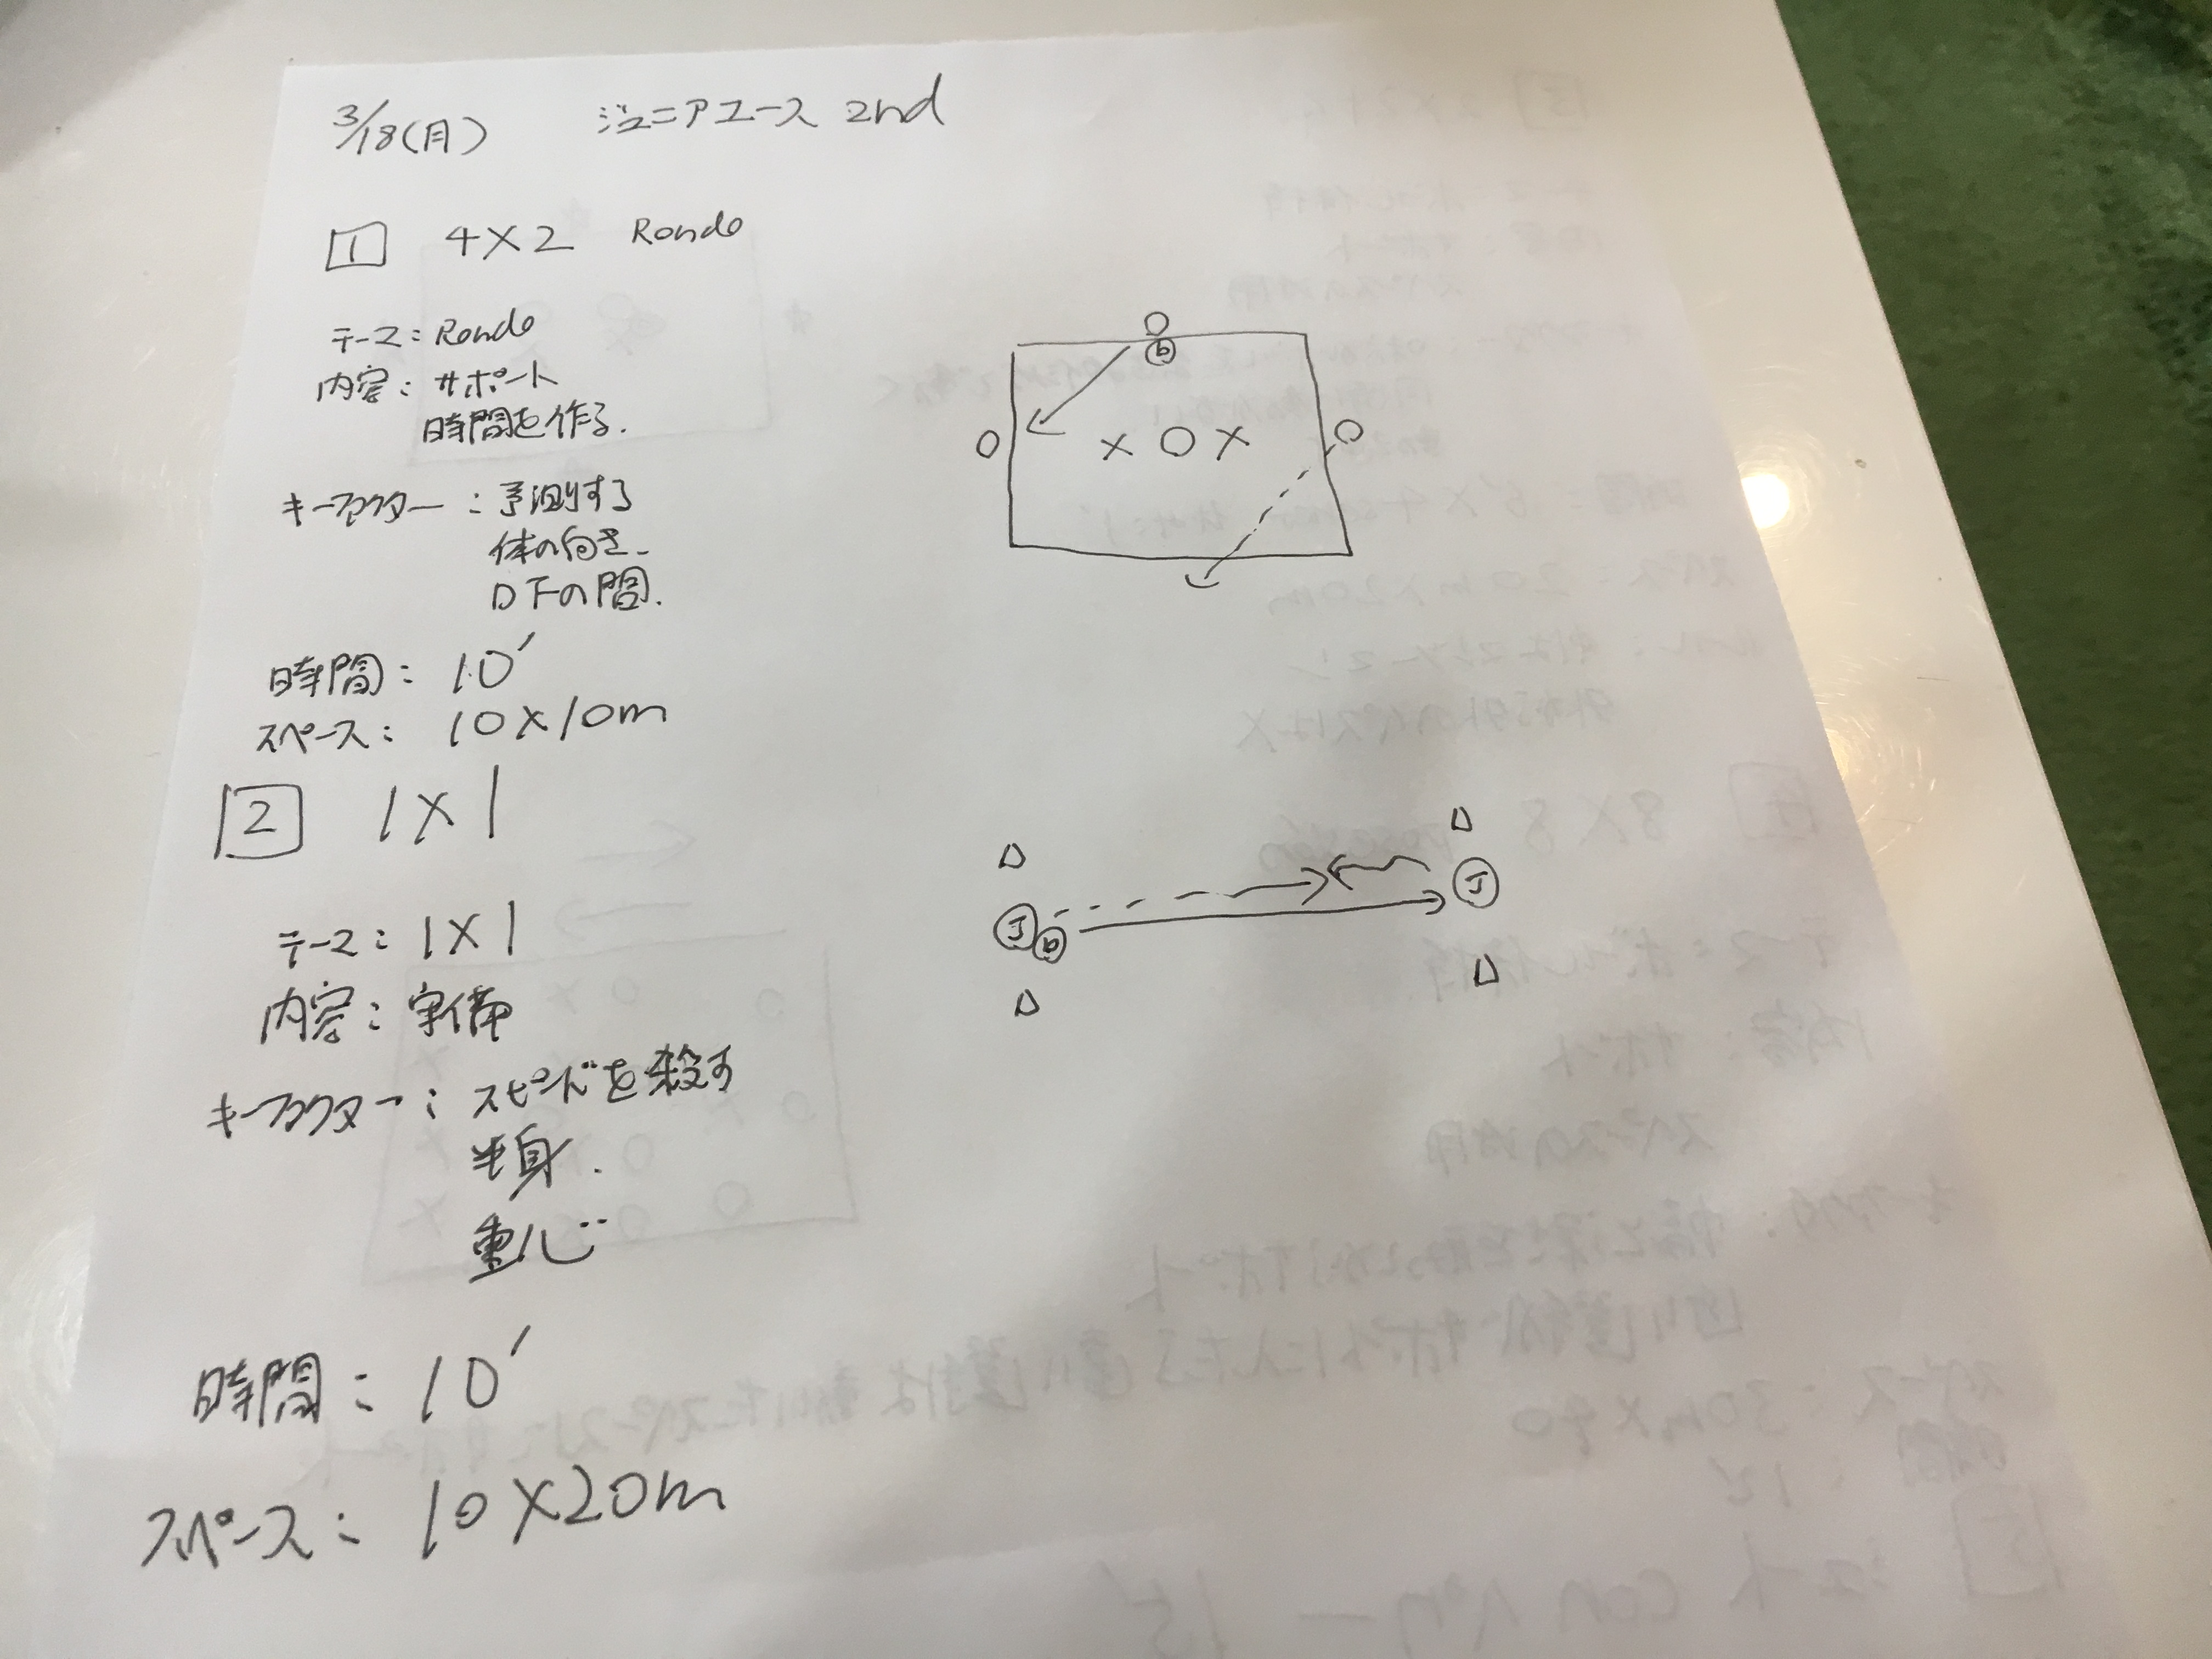 3/18(月) ジュニアユース 2nd
1 4×2 Rondo
テーマ: Rondo
内容: サポート
時間を作る.
キーファクター: 予測する
体の向き
DFの間.
時間: 10'
スペース: 10×10m
b
× O ×
2 1×1
テーマ: 1×1
内容: 守備
キーファクター: スピードを殺す
半身.
重心
時間: 10'
スペース: 10×20m
J
J b